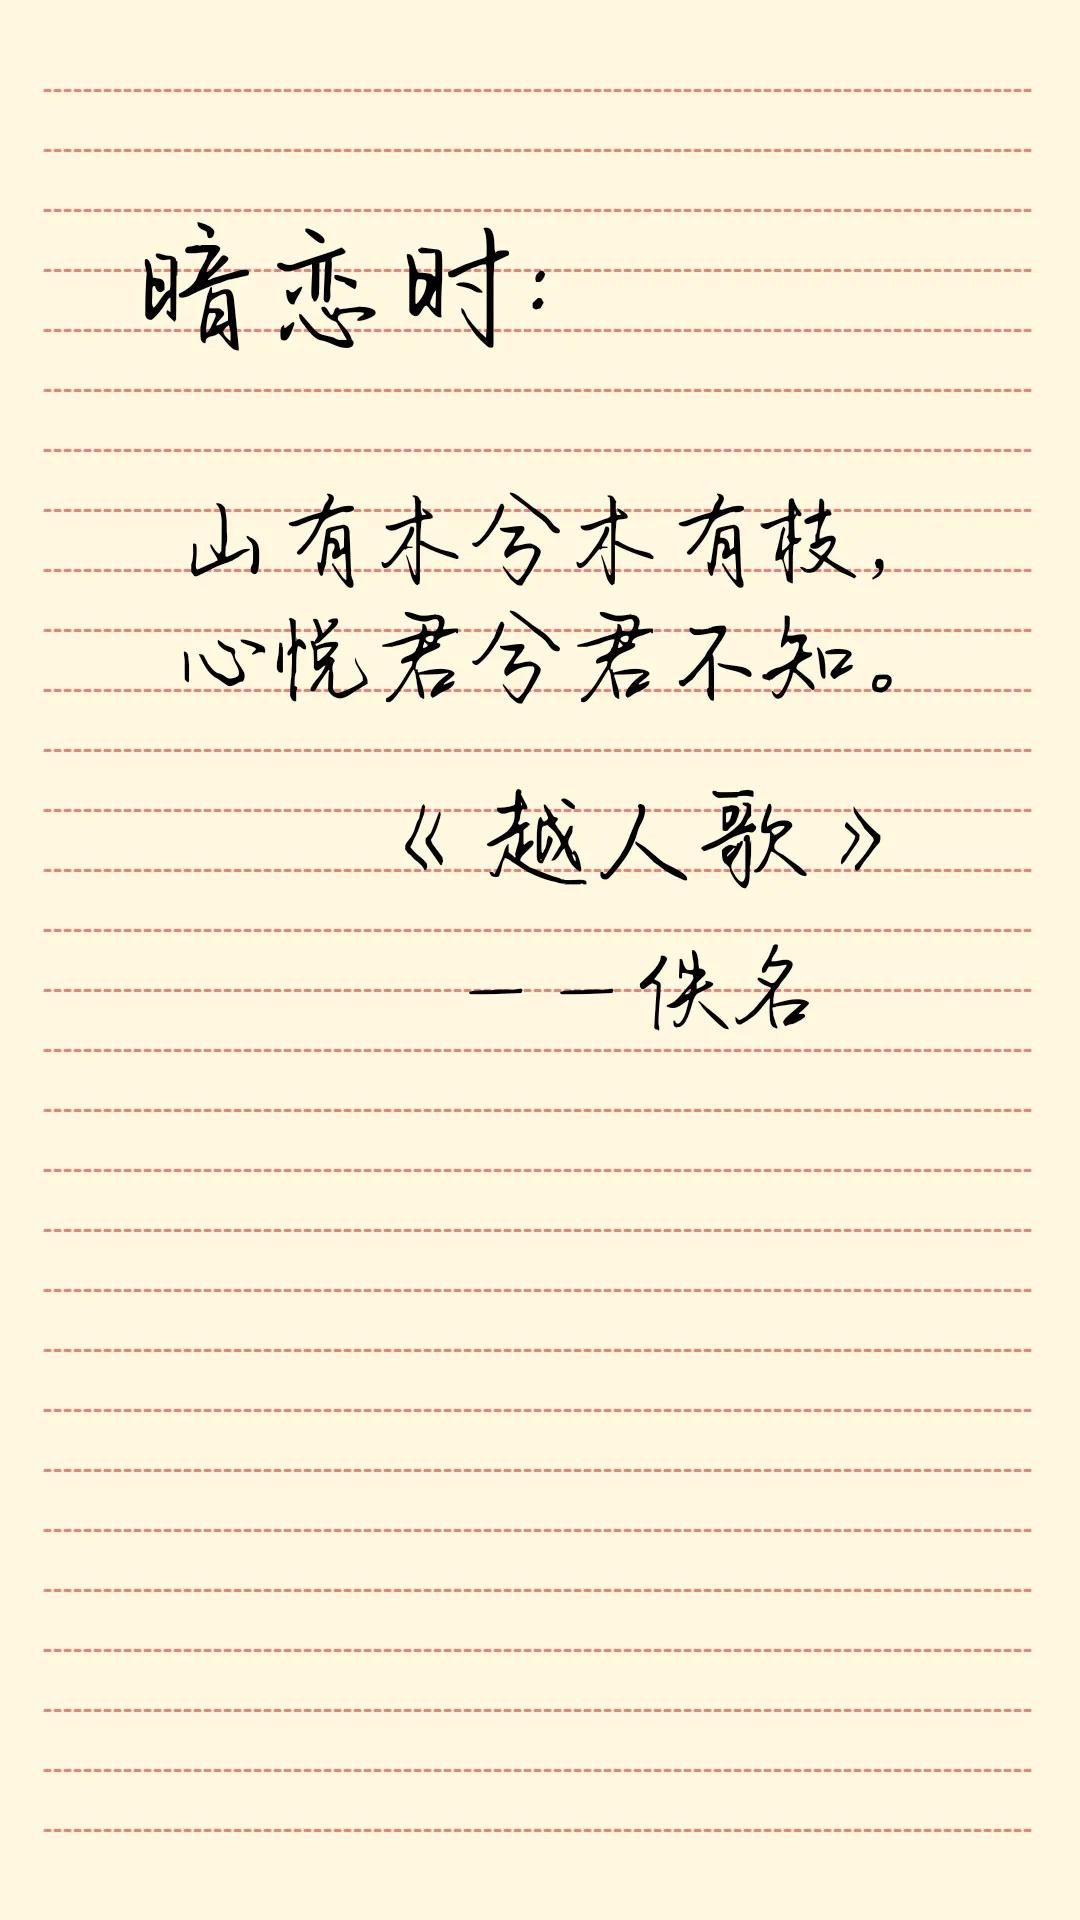 暗恋时：
山有木兮木有枝，
心悦君兮君不知。
《越人歌》
——佚名